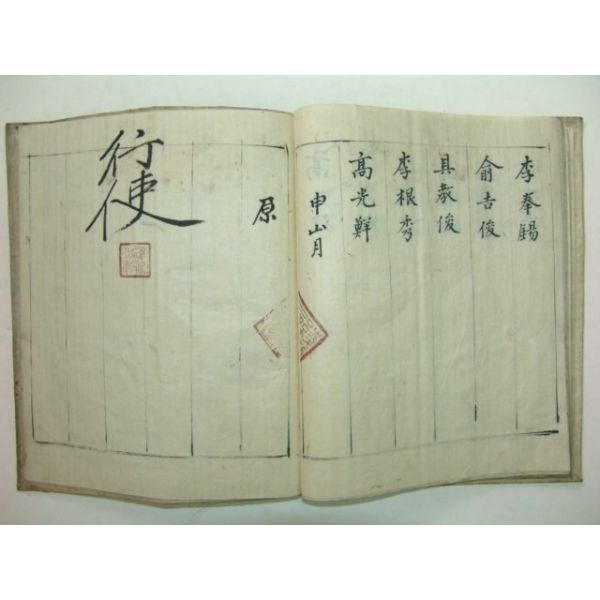 李奉錫
俞吉俊
具敎俊
李根秀
高光鮮
申山月
原
行使